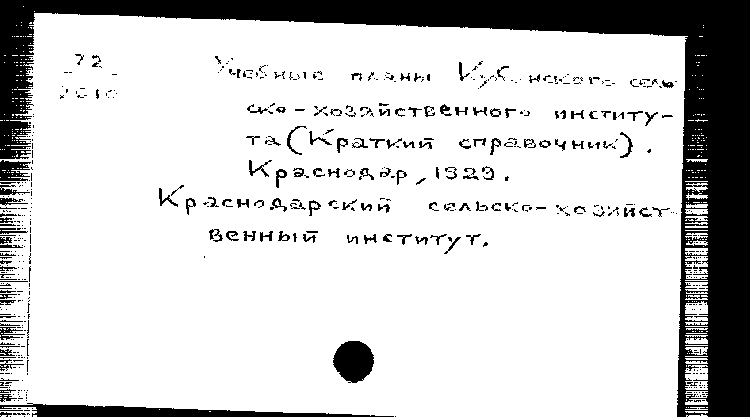 72
2010
Учебные планы Кубанского сель
ско-хозяйственного институ-
та (Краткий справочник).
Краснодар, 1929.
Краснодарский сельско-хозяйст-
венный институт.